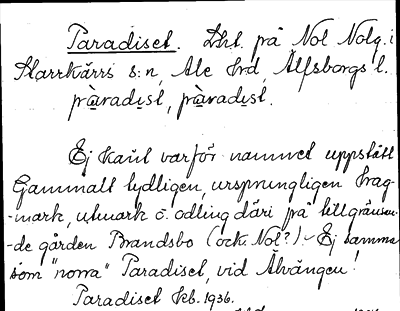 Paradiset. Lht. på Nol Nolg. i
Starrkärrs s:n, Ale hrd, Älfsborgs l.
paradist, paradist.
Ej känt varför namnet uppstått
Gammalt tydligen, ursprungligen hag-
-mark, utmark o. odling däri på tillgränsan-
-de gården Brandsbo (ock. Nol?) - Ej samma
som "norra" Paradiset, vid Älvängen!
Paradiset hb. 1936.